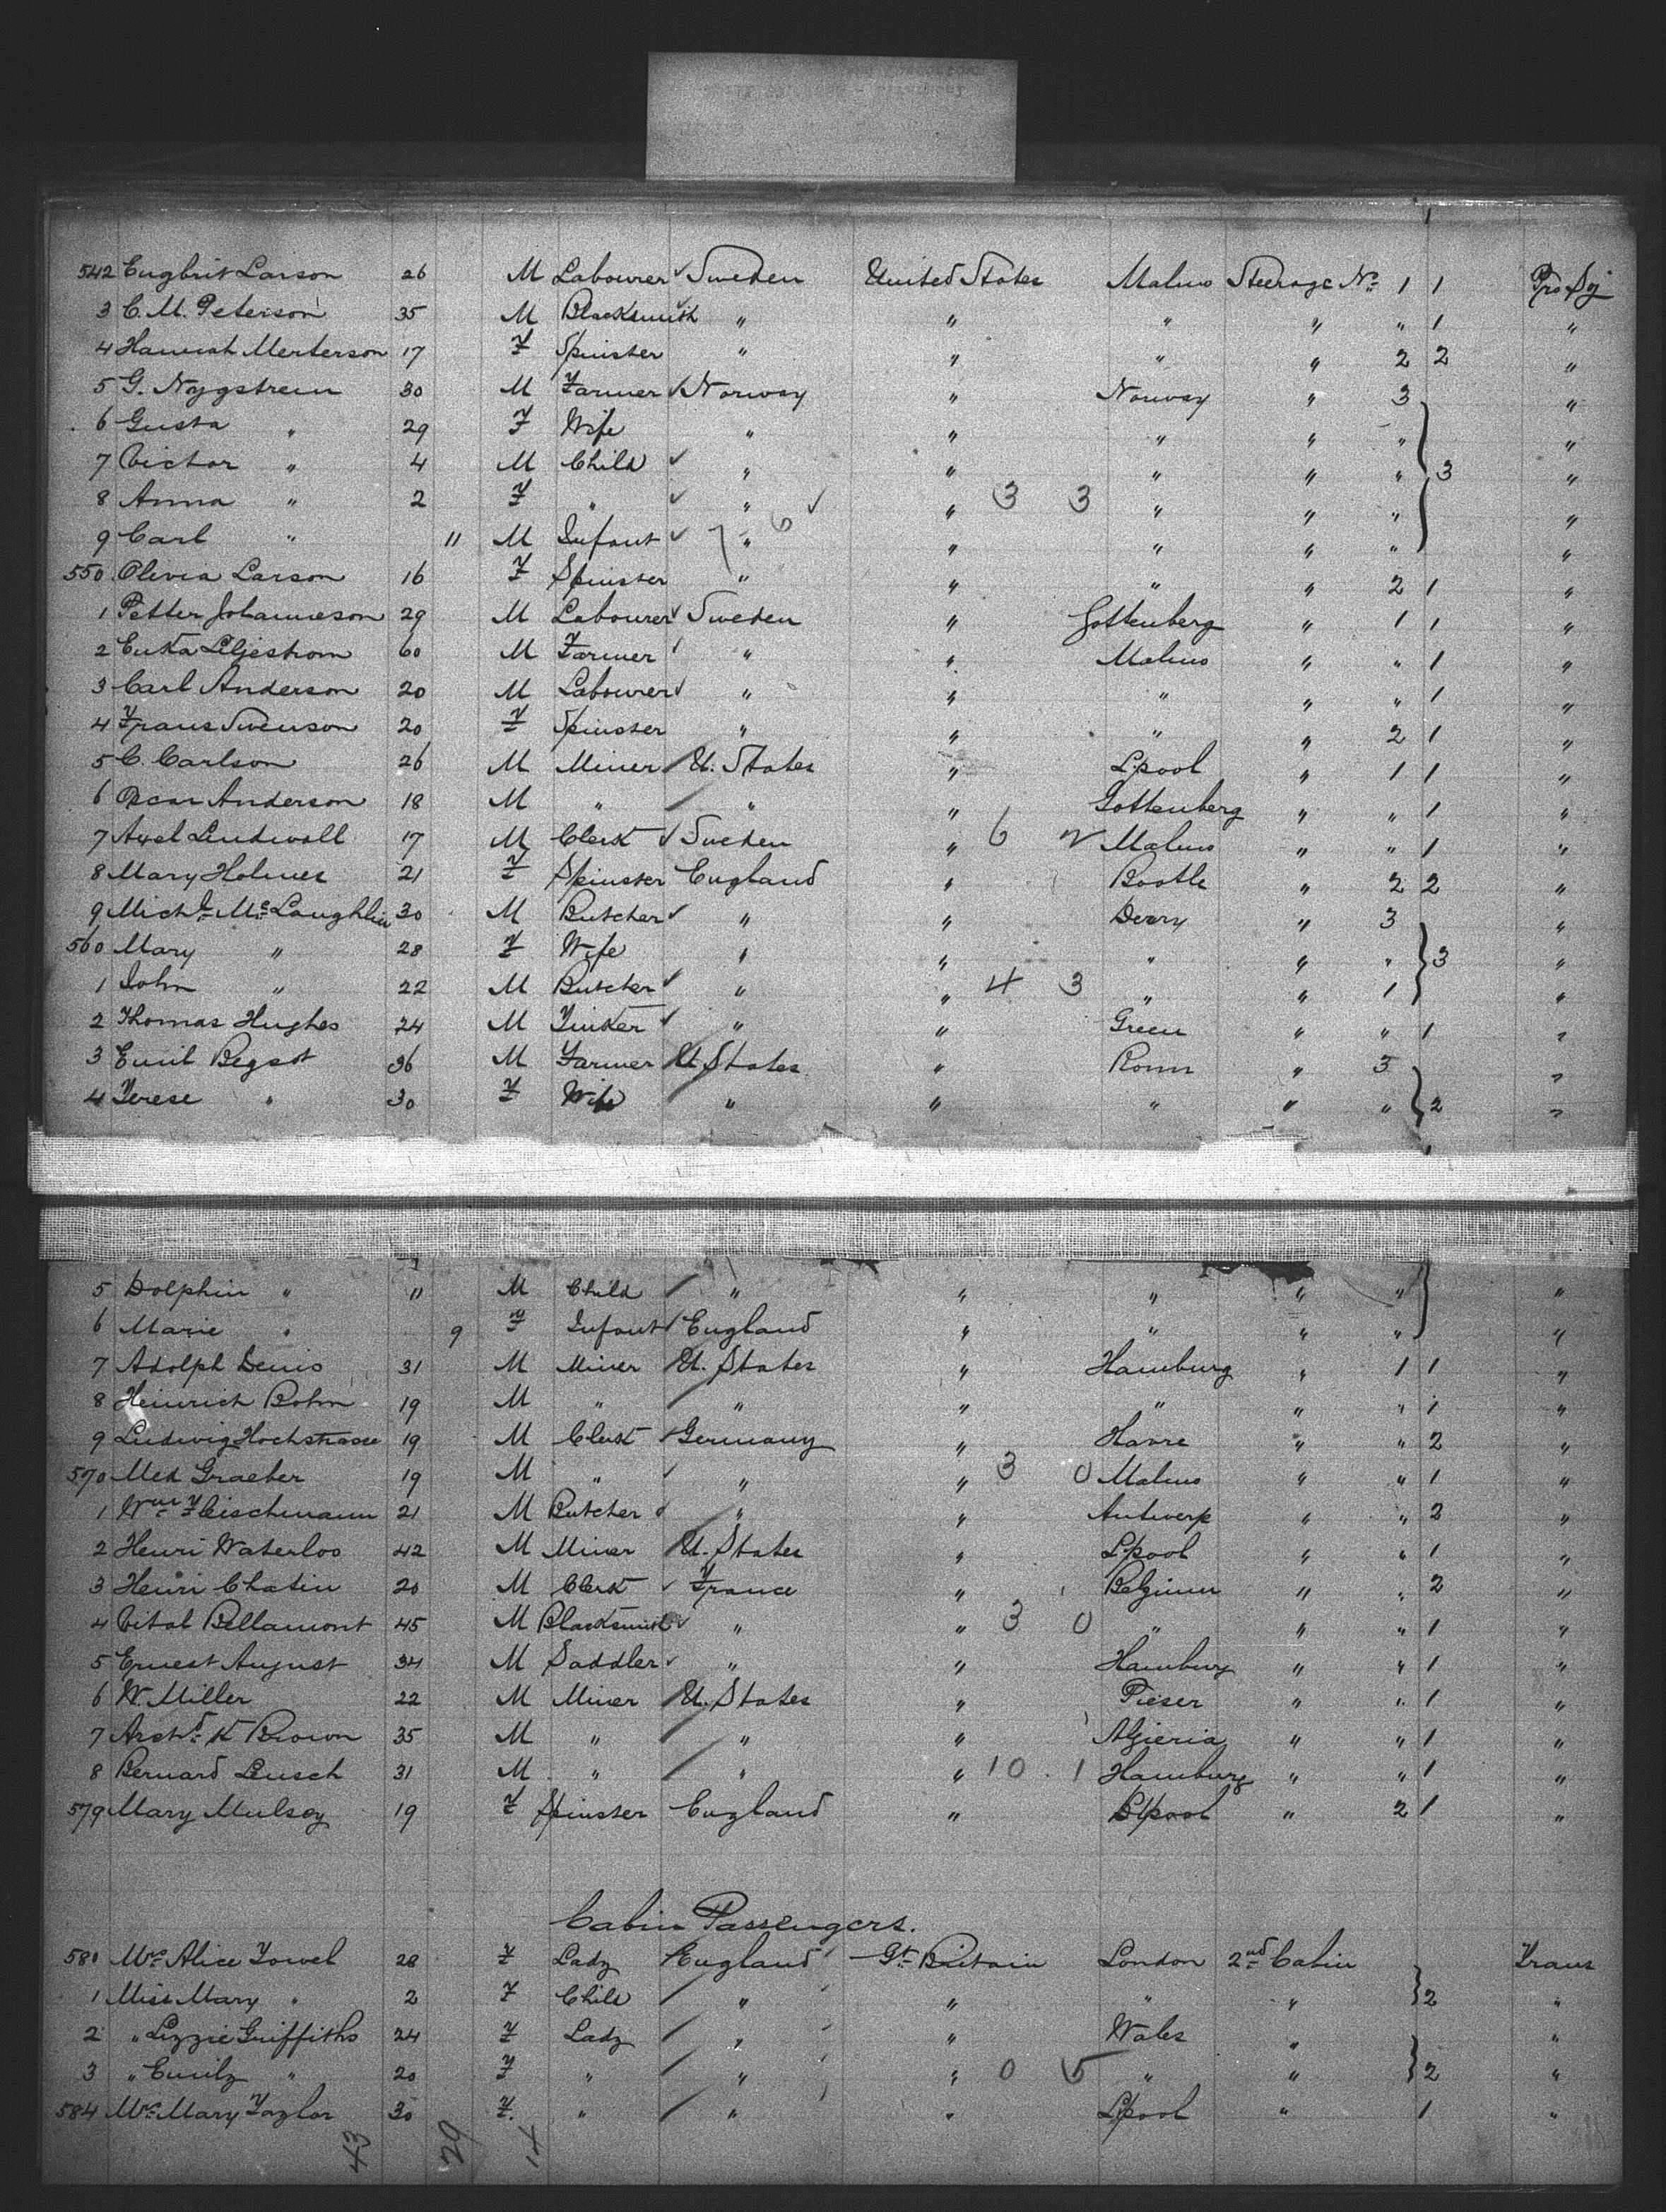 542 Engbrit Larson 26 M Labourer Sweden United States Malmo Steerage No 1 1 Pro Soj
3 C. M. Peterson 35 M Blacksmith " " " " " 1 "
4 Hannah Merterson 17 F Spinster " " " " 2 2 "
5 G. Nygstrem 30 M Farmer Norway " Norway " 3 "
6 Gusta " 29 F Wife " " " " " "
7 Victor " 4 M Child " " " " " 3 "
8 Anna " 2 F " " " 3 3 " " " "
9 Carl " 11 M Infant " " " " " "
550 Olivia Larson 16 F Spinster " " " " 2 1 "
1 Petter Johanneson 29 M Labourer Sweden " Gottenberg " 1 1 "
2 Liljestrom 60 M Farmer " " Malmo " " 1 "
3 Carl Anderson 20 M Labourer " " " " " 1 "
4 Frans Swenson 20 F Spinster " " " " 2 1 "
5 C. Carlson 26 M Miner U. States " L.pool " 1 1 "
6 Oscar Anderson 18 M " " " Gottenberg " " 1 "
7 Axel Lindwall 17 M Clerk Sweden " 6 2 Malmo " " 1 "
8 Mary Holmes 21 F Spinster England " Bootle " 2 2 "
9 Michl McLaughlin 30 M Butcher " " Derry " 3 "
560 Mary " 28 F Wife " " " " " 3 "
1 John " 22 M Butcher " " 4 3 " " 1 "
2 Thomas Hughes 24 M Tinker " " Green " " 1 "
3 Emil Begot 36 M Farmer U. States " Rouen " 3 "
4 Terese " 30 F Wife " " " " " 2 "
5 Dolphin " 11 M Child " " " " " "
6 Marie " 9 F Infant England " " " " "
7 Adolph Denis 31 M Miner U. States " Hamburg " 1 1 "
8 Heinrich Bohm 19 M " " " " " " 1 "
9 Ludwig Hochstrasse 19 M Clerk Germany " Havre " " 2 "
570 Med Graeber 19 M " " " 3 0 Malmo " " 1 "
1 Wm Fleischmann 21 M Butcher " " Antwerp " " 2 "
2 Henri Waterloo 42 M Miner U. States " L.pool " " 1 "
3 Henri Chatin 20 M Clerk France " Belgium " " 2 "
4 Vital Bellamont 45 M Blacksmith " " 3 0 " " " 1 "
5 Ernest August 34 M Saddler " " Hamburg " " 1 "
6 W. Miller 22 M Miner U. States " Pieser " " 1 "
7 Archd K Brown 35 M " " " Algieria " " 1 "
8 Bernard Lensch 31 M " " " 10 1 Hamburg " " 1 "
579 Mary Mulsey 19 F Spinster England " L'pool " 2 1 "
Cabin Passengers.
580 Mrs Alice Towel 28 F Lady England Gt Britain London 2nd Cabin Trans
1 Miss Mary " 2 F Child " " " " 2 "
2 " Lizzie Griffiths 24 F Lady " " Wales " "
3 " Emily " 20 F " " " 0 5 " " 2 "
584 Mrs Mary Taylor 30 F. " " " L'pool " 1 "
43 29 14